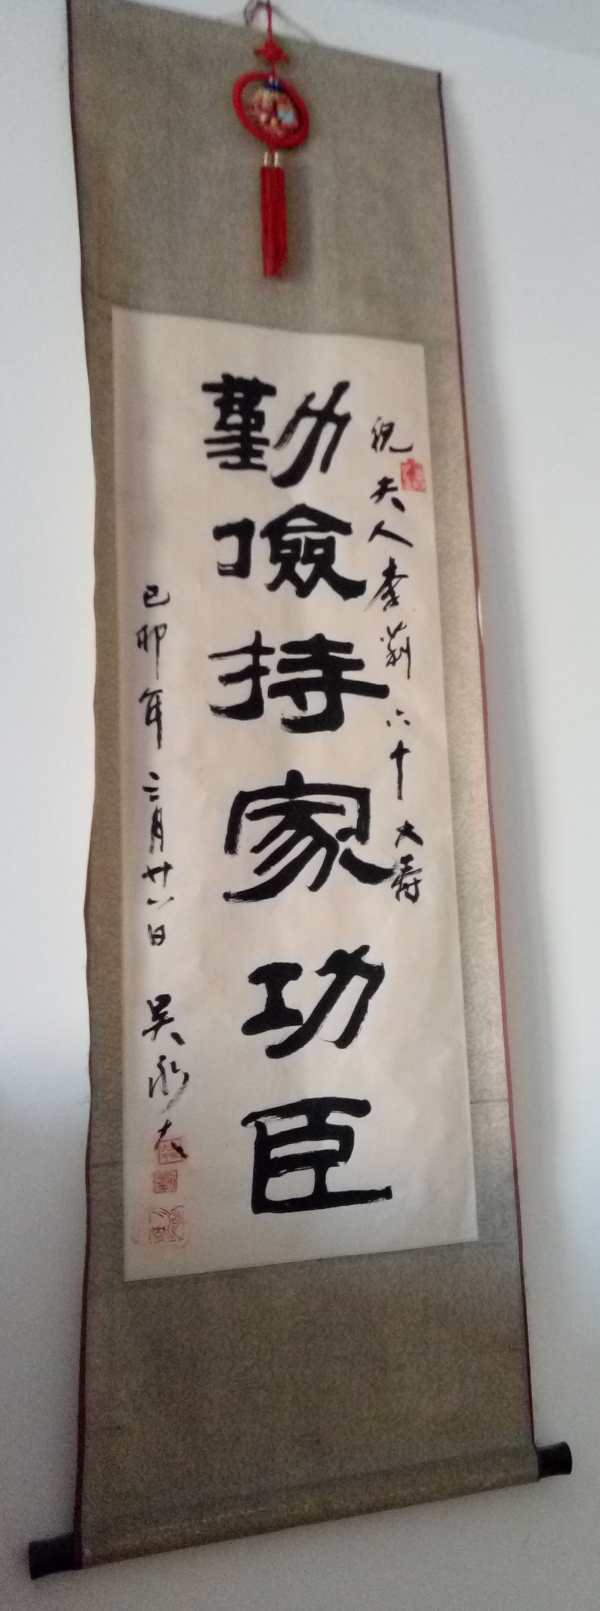 祝夫人李莉六十大寿
勤儉持家功臣
己卯年二月廿六日 吴永